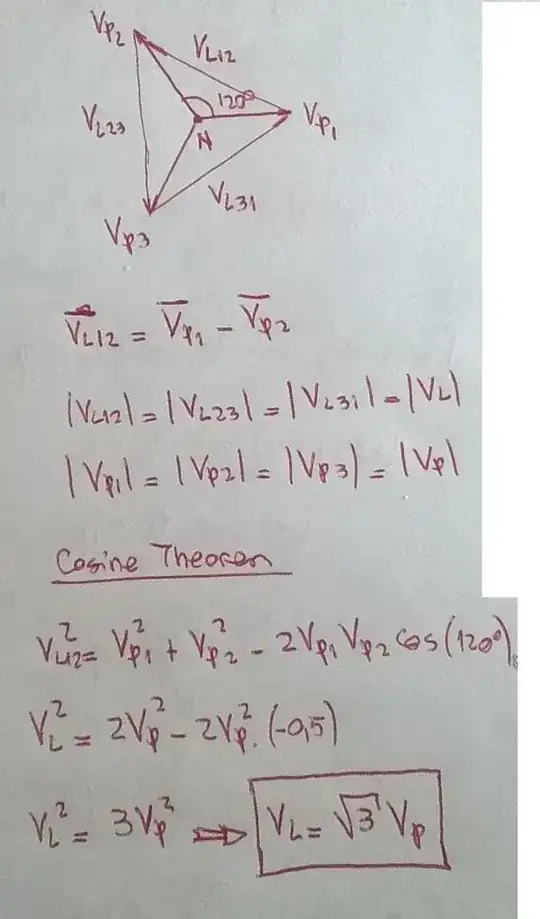 Vp2
VL12
120°
VL23
N
Vp1
VL31
Vp3
V̅L12 = V̅p1 - V̅p2
|VL12| = |VL23| = |VL31| = |VL|
|Vp1| = |Vp2| = |Vp3| = |Vp|
Cosine Theorem
VL12² = Vp1² + Vp2² - 2Vp1 Vp2 Cos(120°)
VL² = 2Vp² - 2Vp². (-0,5)
VL² = 3Vp² ⇒ VL = √3 Vp